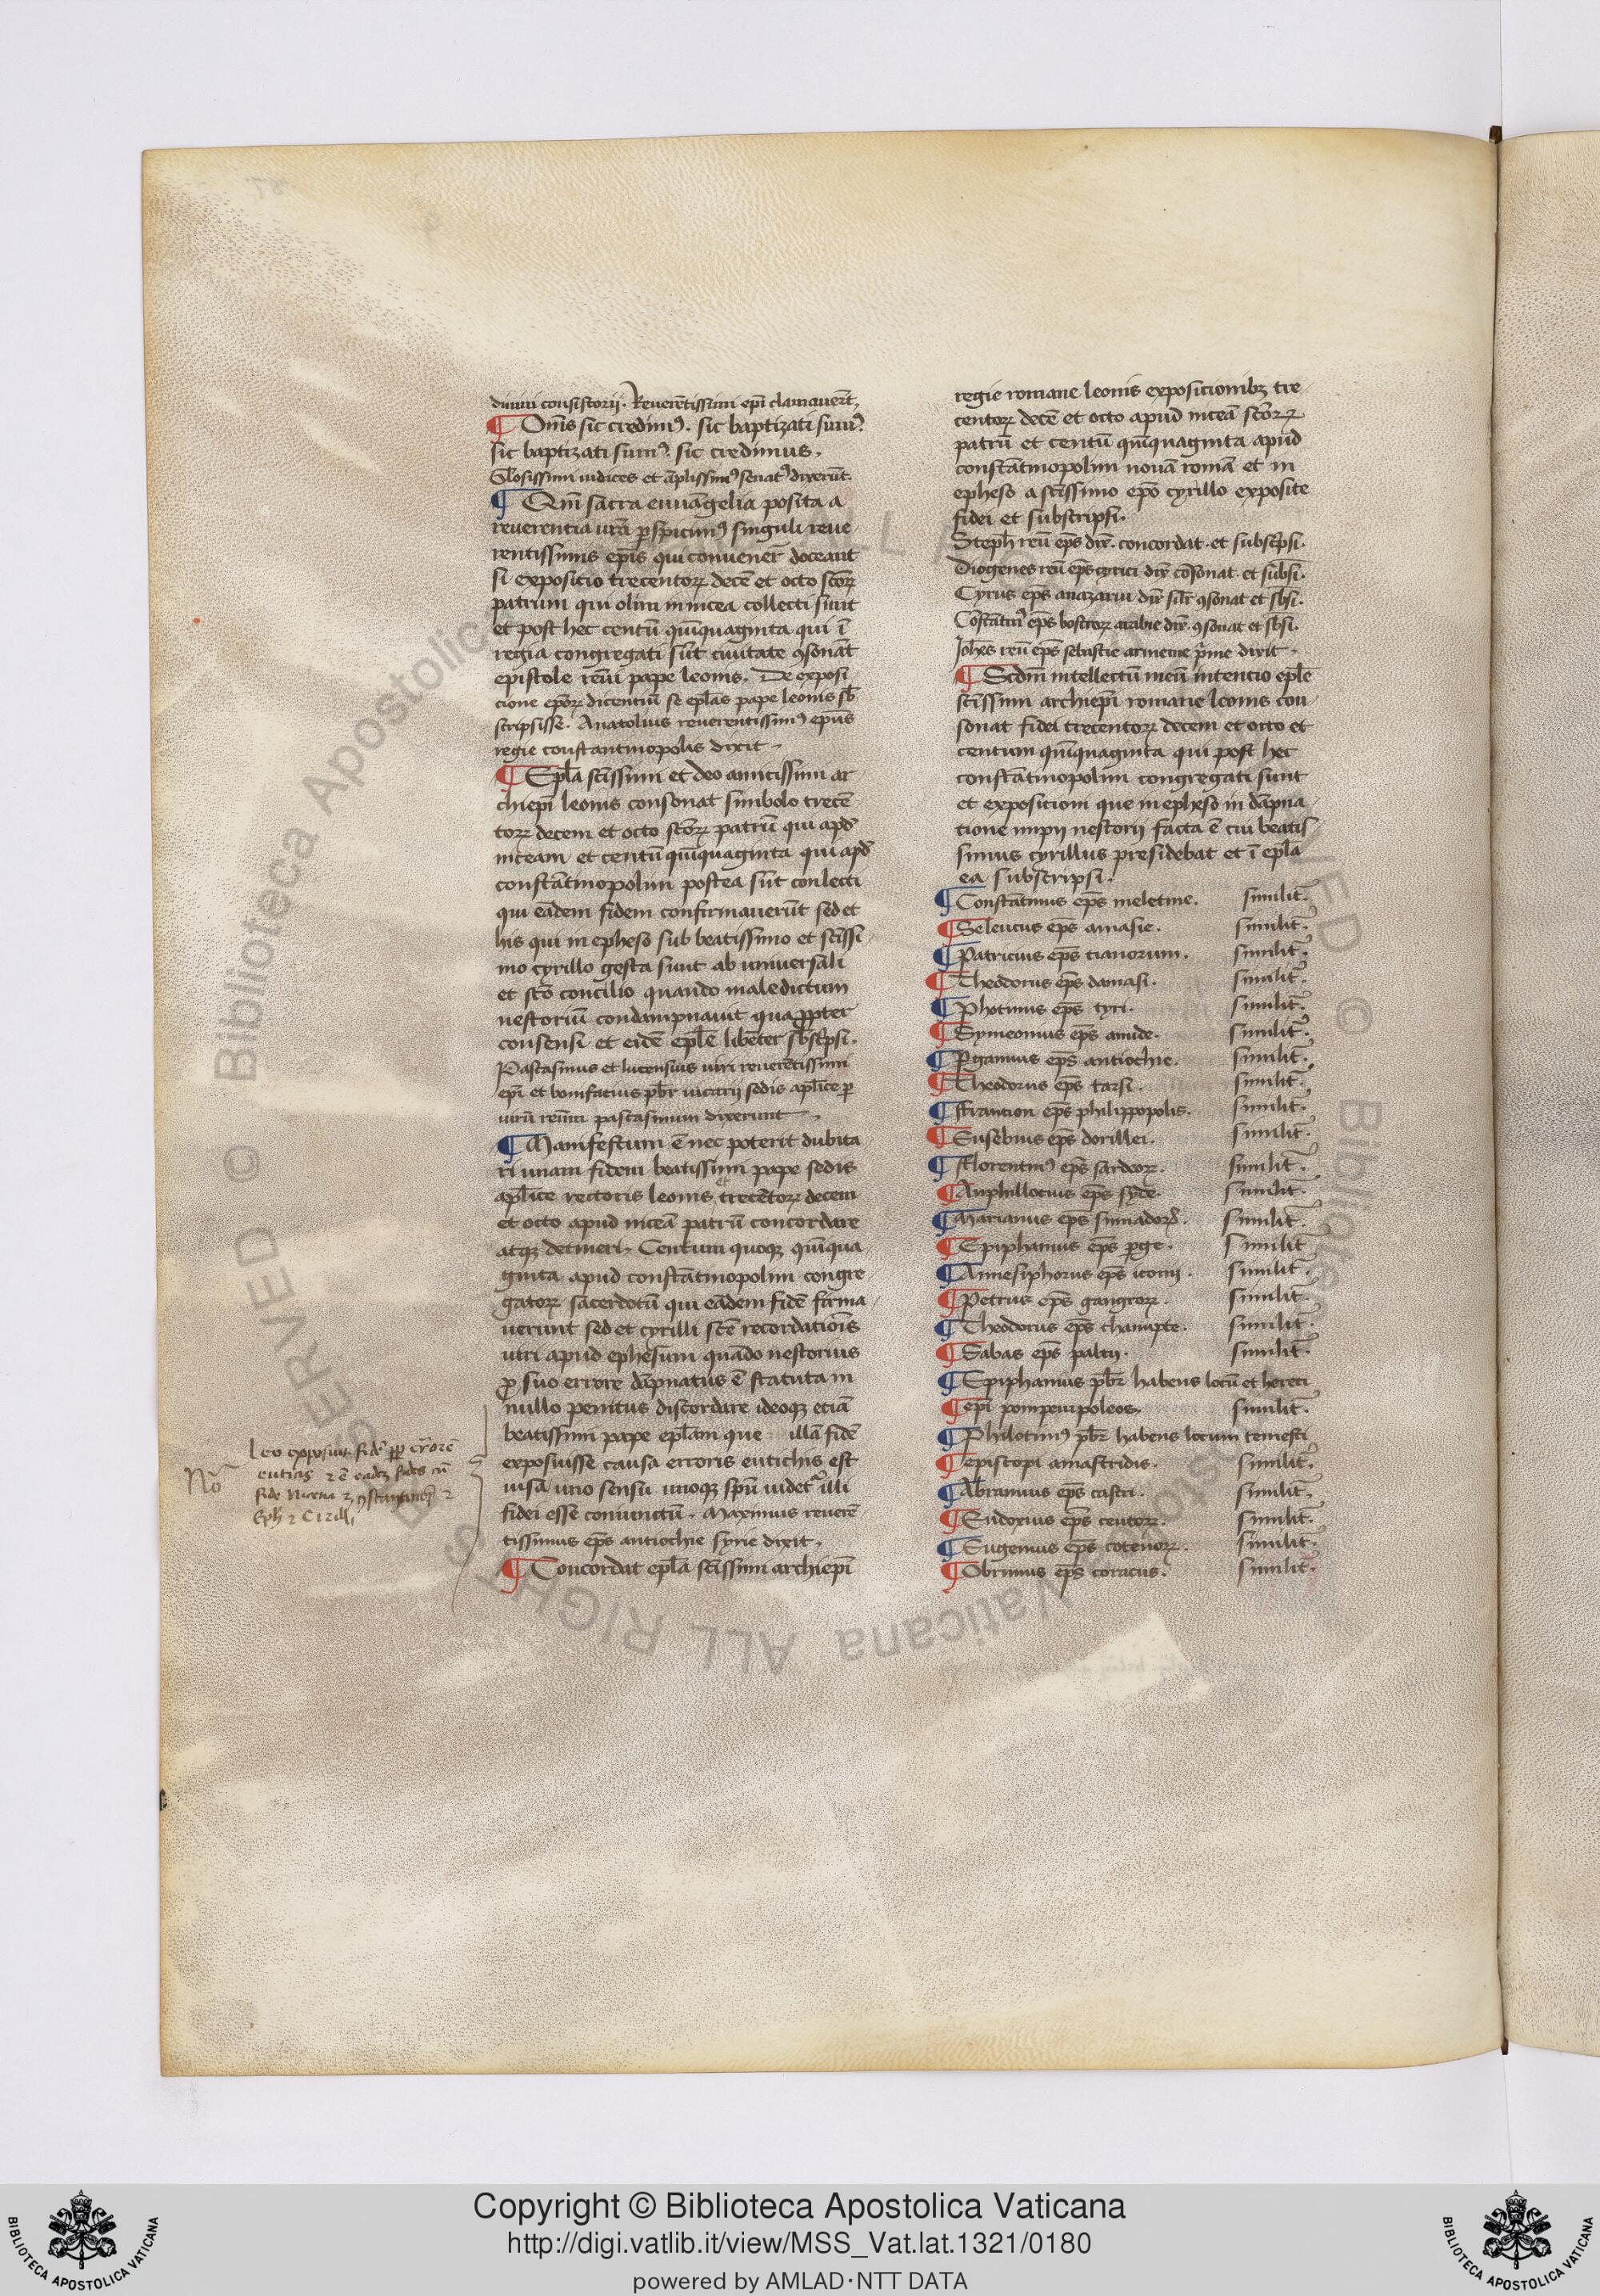 diuini consistorii. Reuerētissimi epī clamauer̄t,
¶ Om̄s sic credimꝰ. sic baptizati sumꝰ.
sic baptizati sumꝰ. sic credimus.
Glosissimi iudices et āplissimꝰ senatꝰ dixerūt.
¶ Qm̄ sacra euuāgelia posita a
reuerentia vrā ꝑspicimꝰ singuli reue
rentissimis epīs qui conuener̄t doceant
si expositio trecentoꝝ decē et octo sc̄oꝝ
patrum qui olim in nicea collecti sunt
et post hec centū quīquaginta qui ī
regia congregati sūt ciuitate ꝯsonāt
epistole reūi pape leonis. De exposi
cione epōꝝ dicentiū se epl̄as pape leonis sb̄
scripsisse. Anatolius reuerentissimꝰ epūs
regie constantinopolis dixit
¶ Epl̄a sc̄issimi et deo amicissimi ar
chiepī leonis consonat simbolo trecē
toꝝ decem et octo sc̄oꝝ patrū qui apd̄
niceam et centū quīquaginta qui apd̄
constātinopolim postea sūt conlecti
qui eādem fidem confirmauerūt sed et
his qui in epheso sub beatissimo et sc̄issi
mo cyrillo gesta sunt ab uniuersali
et sc̄o concilio quando maledictum
nestoriū condampnauit quapp̄ter
consensi et eidē epl̄e libēter sb̄sc̄psi.
Pascasinus et lucensius uiri reuerētissimi
epī et bonifacius pb̄r vicarij sedis apl̄ice ꝑ
uirū reūm pascasinum dixerunt
¶ Manifestum ē nec poterit dubita
ri unam fidem beatissimi pape sedis
apl̄ice rectoris leonis et trecētoꝝ decem
et octo apud niceā patrū concordare
atqꝫ detineri. Centum quoqꝫ quīqua
ginta apud constātinopolim congre
gatoꝝ sacerdotū qui eādem fidē firma
uerunt sed et cyrilli sc̄e recordatiōis
uiri apud ephesum quādo nestorius
ꝓ suo errore dāpnatus ē statuta in
nullo penitus discordare ideoqꝫ eciā
beatissimi pape epl̄am que illā fidē
exposuisse causa erroris eutichis est
uisa uno sensu unoqꝫ spū uidetꝰ illi
fidei esse coniunctū. Maximus reuerē
tissimus ep̄s antiochie syrie dixit.
¶ Concordat epl̄a sc̄issimi archiepī
Nō
Leo exposuit fidē
eutici
Eph
regie romane leonis exposicionibꝫ tre
centoꝝ decē et octo apud niceā sc̄oꝝ
patrū et centū quīquaginta apud
constātinopolim nouā romā et in
epheso a sc̄issimo epō cyrillo exposite
fidei et subscripsi.
Steph̄ reū ep̄s dix̄. concordat. et subsc̄psi.
Diogenes reū ep̄s cyzici dix̄ cōsonat. et subsī.
Cyrus ep̄s anazarui dix̄ sil̄r ꝯsonat et sb̄si.
Cōstātinꝰ ep̄s bostroꝝ arabie dix̄. ꝯsonat et sb̄si.
Joh̄es reū ep̄s sebastie armenie p̄me dixit.
¶ Scdm̄ intellectū meū intencio epl̄e
sc̄issimi archiepī romane leonis con
sonat fidei trecentoꝝ decem et octo et
centum quīquaginta qui post hec
constātinopolim congregati sunt
et expositioni que in epheso in dāpna
tione impij nestorij facta ē cui beatis
simus cyrillus presidebat et ī epl̄a
ea subscripsi.
¶ Constātinus ep̄s meletine. similit̄.
¶ Seleucus ep̄s amasie. similit̄.
¶ Patricius ep̄s tianorum. similit̄.
¶ Theodorus ep̄s damasi. similit̄.
¶ Photinus ep̄s tyri. similit̄.
¶ Symeonius ep̄s amide. similit̄.
¶ Ꝑgamius ep̄s antiochie. similit̄.
¶ Theodorus ep̄s tarsi. similit̄.
¶ Frantion ep̄s philippopolis. similit̄.
¶ Eusebius ep̄s dorillei. similit̄.
¶ Florentinꝰ ep̄s sardeoꝝ. similit̄.
¶ Anphillocius ep̄s syde. similit̄.
¶ Marianus ep̄s sinnadoꝝ. similit̄.
¶ Epiphanius ep̄s ꝑge. similit̄
¶ Annesiphorus ep̄s iconij. similit̄.
¶ Petrus ep̄s gangroꝝ. similit̄.
¶ Theodorus ep̄s chanipte. similit̄.
¶ Sabas ep̄s paltij. similit̄.
¶ Epiphanius pb̄r habens locū et hereti
¶ epī pompeiupoleos. similit̄.
¶ Philotimꝰ pb̄r habens locum temesti
¶ episcopi amastridis. similit̄.
¶ Abramius ep̄s castri. similit̄.
¶ Eudoxius ep̄s ceutoꝝ. similit̄.
¶ Eugenius ep̄s cotenoꝝ. similit̄.
¶ Obrimus ep̄s coracus. similit̄.
Copyright © Biblioteca Apostolica Vaticana
http://digi.vatlib.it/view/MSS_Vat.lat.1321/0180
powered by AMLAD·NTT DATA
BIBLIOTECA APOSTOLICA VATICANA
BIBLIOTECA APOSTOLICA VATICANA